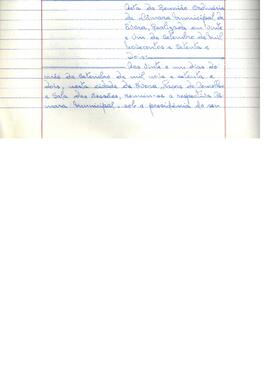 Acta da Reunião Ordinária
da Câmara Municipal de
Évora, Realizada em Vinte
e Um de Setembro de Mil
Novecentos e Setenta e
Dois:
Aos vinte e um dias do
mês de Setembro de mil nove e setenta e
dois, nesta cidade de Évora, Paços do Concelho
e Sala das Sessões, reuniu-se a respectiva Câ
mara Municipal, sob a presidência do seu